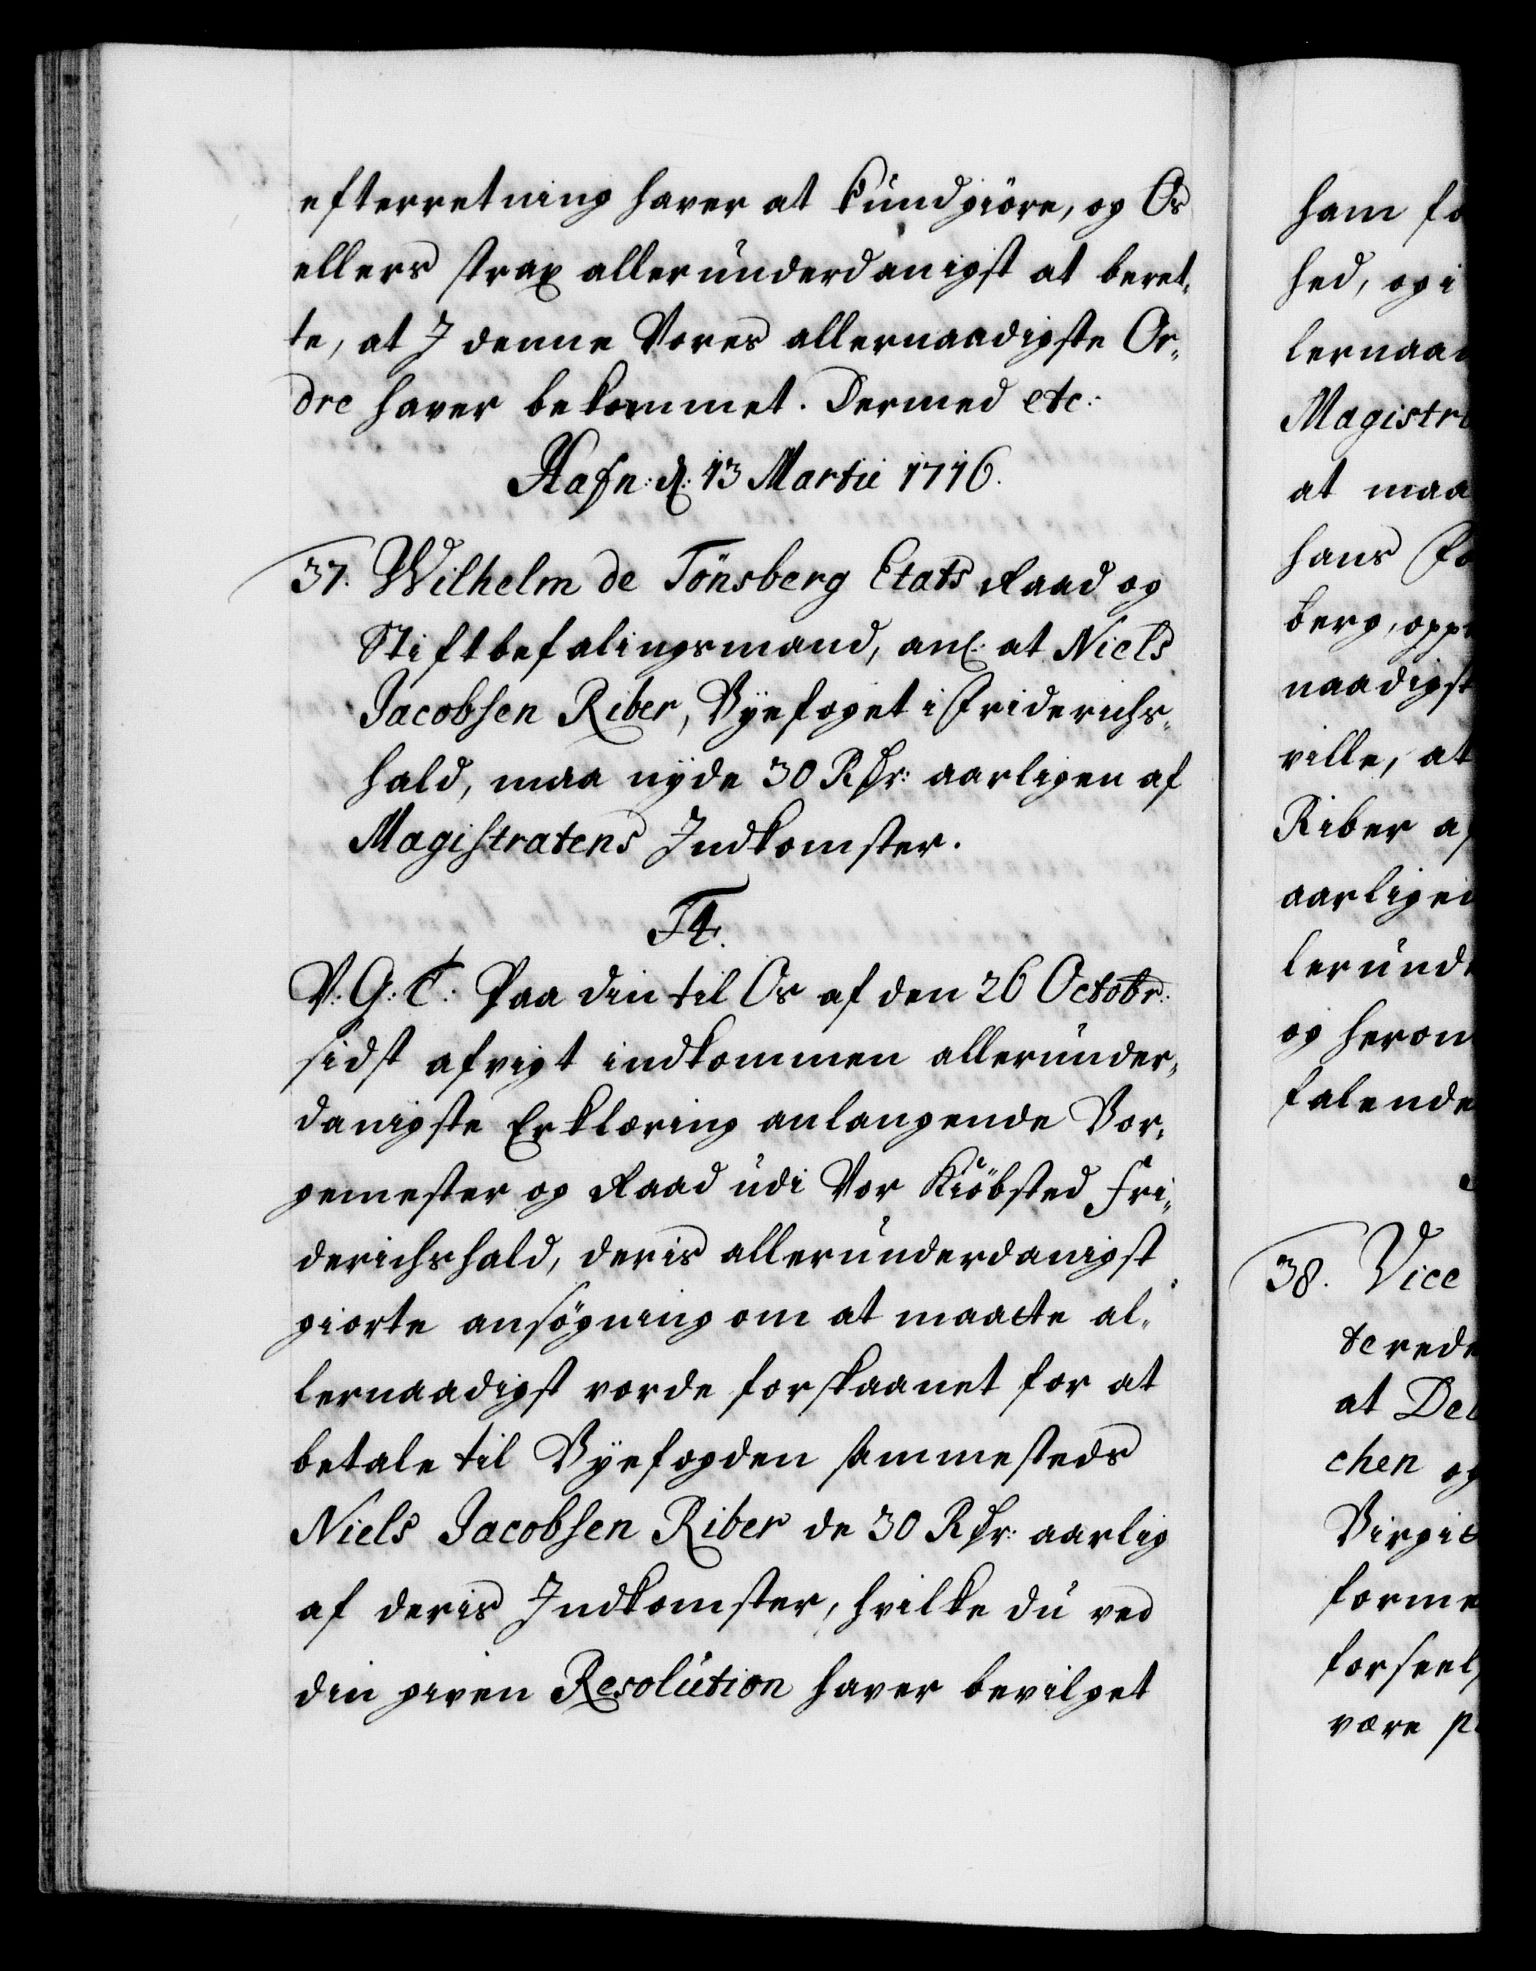 efterretning haver at kundgiöre, og Os
ellers strax allerunderdanigst at beret-
te, at I denne Vores allernaadigste Or-
dre haver bekommet. Dermed etc:
Hafn: d: 13 Martii 1716.
37. Wilhelm de Tönsberg Etats Raad og
Stiftbefalingsmand, anl: at Niels
Jacobsen Riber, Byefoget i Friderichs-
hald, maa nyde 30 Rdr: aarligen af
Magistratens Indkomster.
F4.
V: G: T: Paa din til Os af den 26 Octobr:
sidst afvigt indkommen allerunder-
danigste Erklæring anlangende Bor-
gemester og Raad udi Vor Kiöbsted Fri-
derichshald, deris allerunderdanigst
giorte ansögning om at maatte al-
lernaadigst vorde forskaanet for at
betale til Byefogden sammesteds
Niels Jacobsen Riber de 30 Rdr: aarlig
af deris Indkomster, hvilke du ved
din given Resolution haver bevilget
ham fo
hed, og i
lernaad
Magistra
at maa
hans Fo
berg, opp
naadigst
ville, at
Riber af
aarligen
lerunde
og herom
falende
38. Vice
terede
at De
chen og
Birgit
forme
forseel
være p